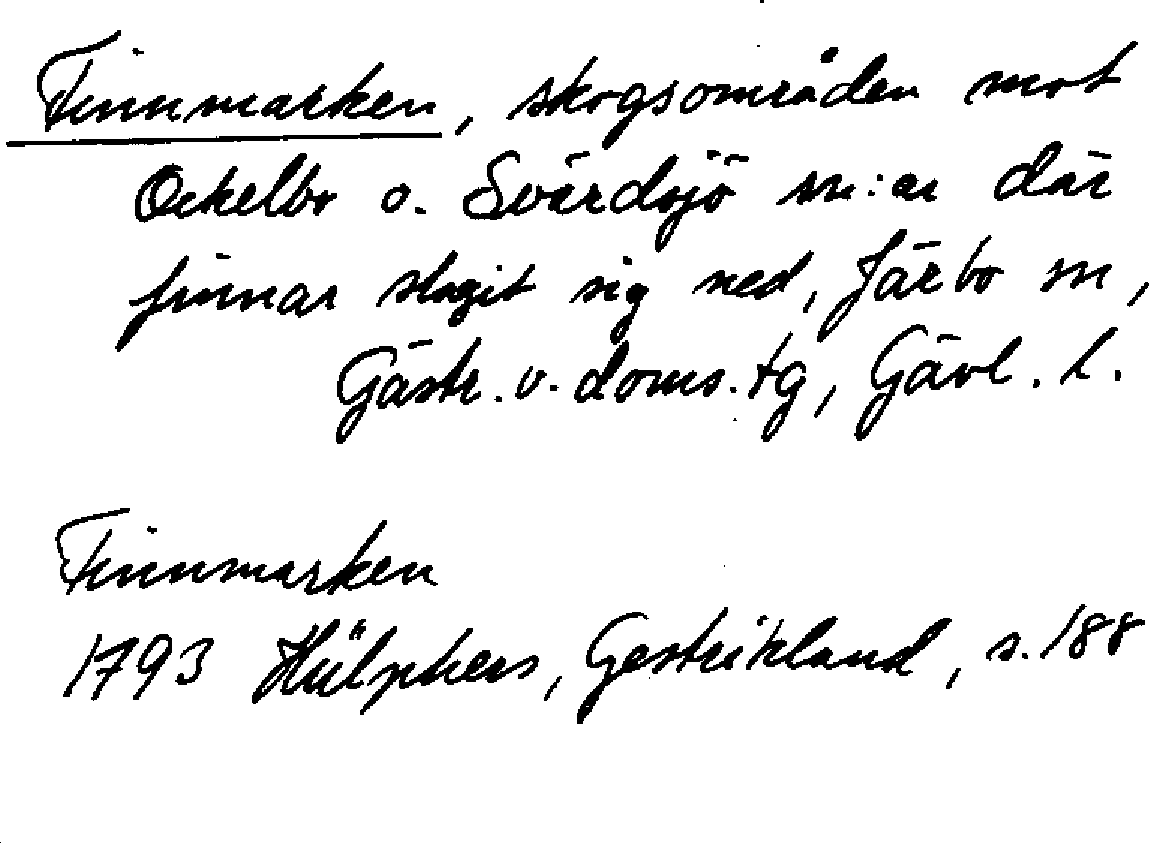 Finnmarken, skogsområden mot
Ockelbo o. Svärdsjö sn:ar där
finnar slagit sig ned, Järbo sn,
Gästr. v. doms. tg, Gävl. l.
Finnmarken
1793 Hülphers, Gestrikland, s. 188